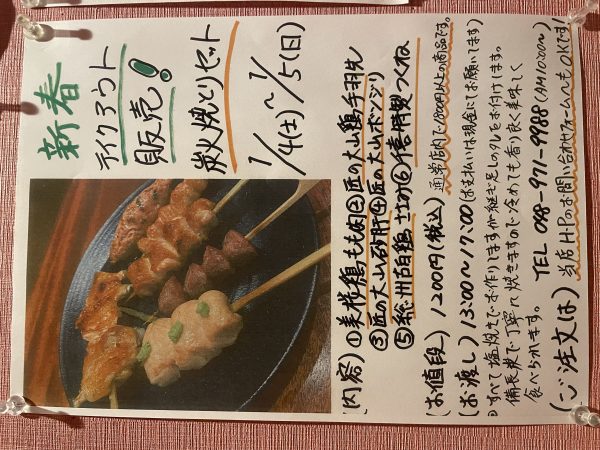 新春
テイクアウト
販売!
炭火焼とりセット
1/4(土)~1/5(日)
(内容)①美桜鶏もも肉②匠の大山鶏手羽先
③匠の大山砂肝④匠の大山ボンジリ
⑤総州古白鶏ささみ⑥特製つくね
(お値段) 1200円(税込) 通常店内で1800円以上の商品です。
(お渡し) 13:00~17:00 (お支払いは現金にてお願いします)
※すべて塩焼きでお作りしますが継ぎ足しのタレをお付けします。
備長炭で丁寧に焼きますので冷めても香り良く美味しく
食べられます。
TEL 048-971-9988 (AM10:00~)
(ご注文は) 当店H.Pのお問い合わせフォームでもOKです!